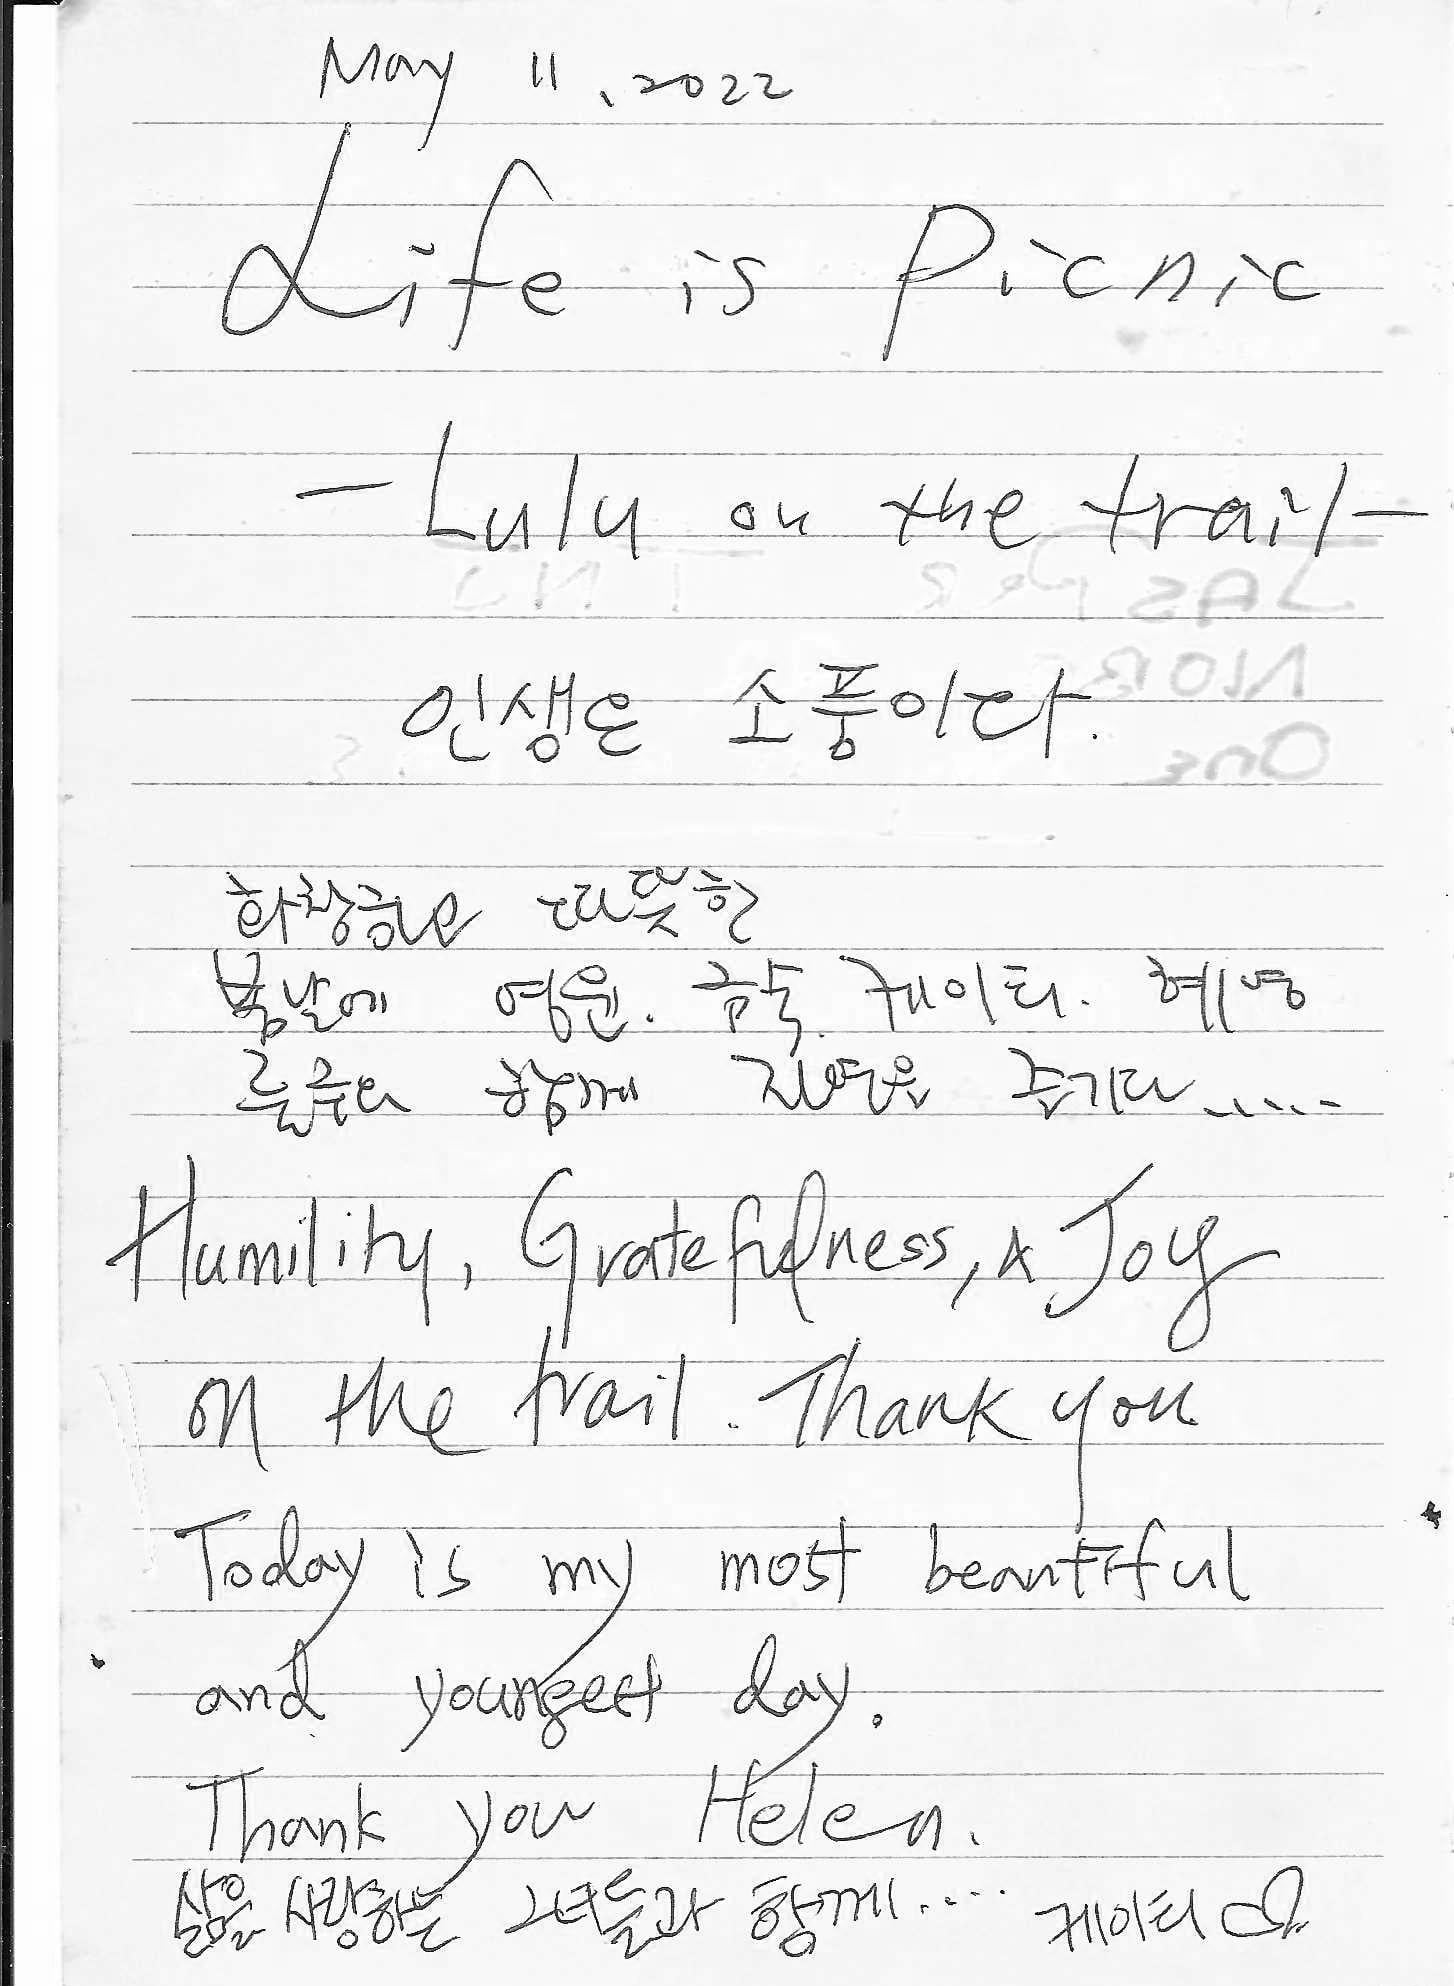 May 11, 2022
Life is Picnic
- Lulu on the trail -
인생은 소풍이다.
따뜻한
봄날에 영윤. 금숙. 케이티. 혜영
함께 즐기다.....
Humility, Gratefulness, & Joy
on the trail. Thank you
Today is my most beautiful
and youngest day.
Thank you Helen.
삶을 사랑하는 그녀들과 함께.... 케이티♡